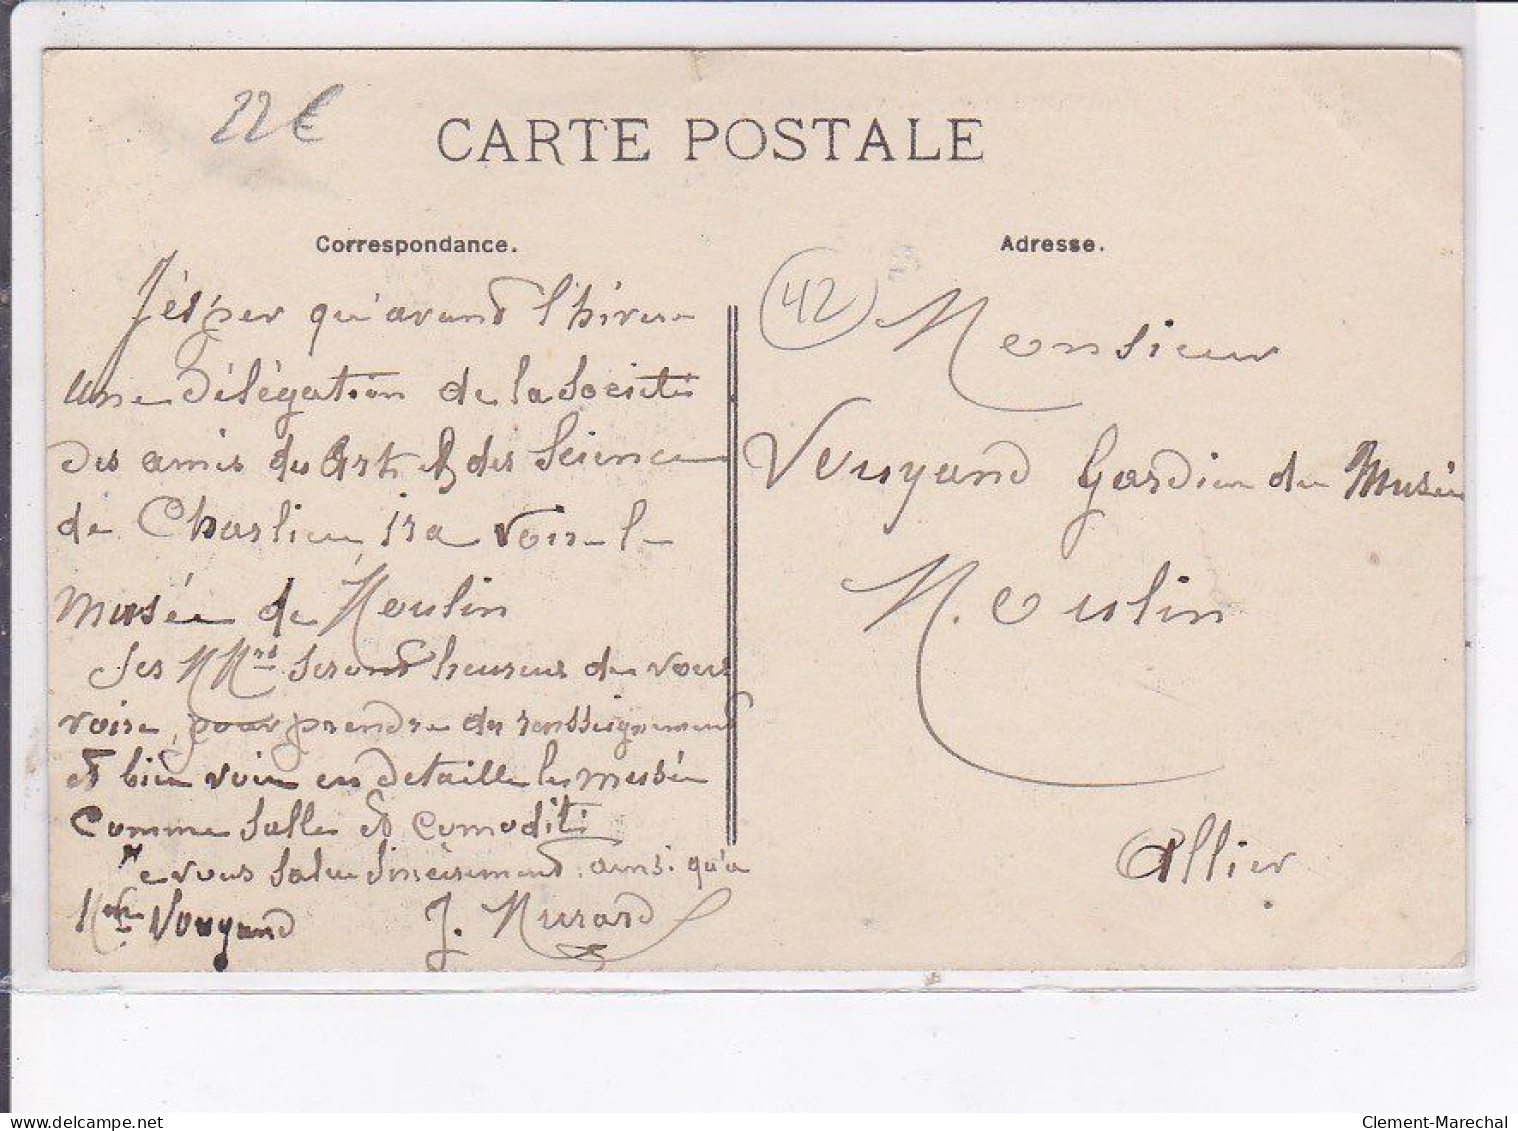 22€
CARTE POSTALE
Correspondance.
J'ésper qu'avant l'hiver
une délégation de la Société
des amis des Arts et des Science
de Charlieu ira voir le
musée de Moulin
Ses MMrs serond heureux de vous
voire, pour prendre des rensseignement
et bien voir en detaille le musée
Comme Salle et comodité
Je vous salue sincèrement ainsi qu'a
Mme Vouyand J. Murard
Adresse.
42
Monsieur
Vouyand Gardien du Musée
Moulin
Allier
delcampe.net
Clement-Marechal